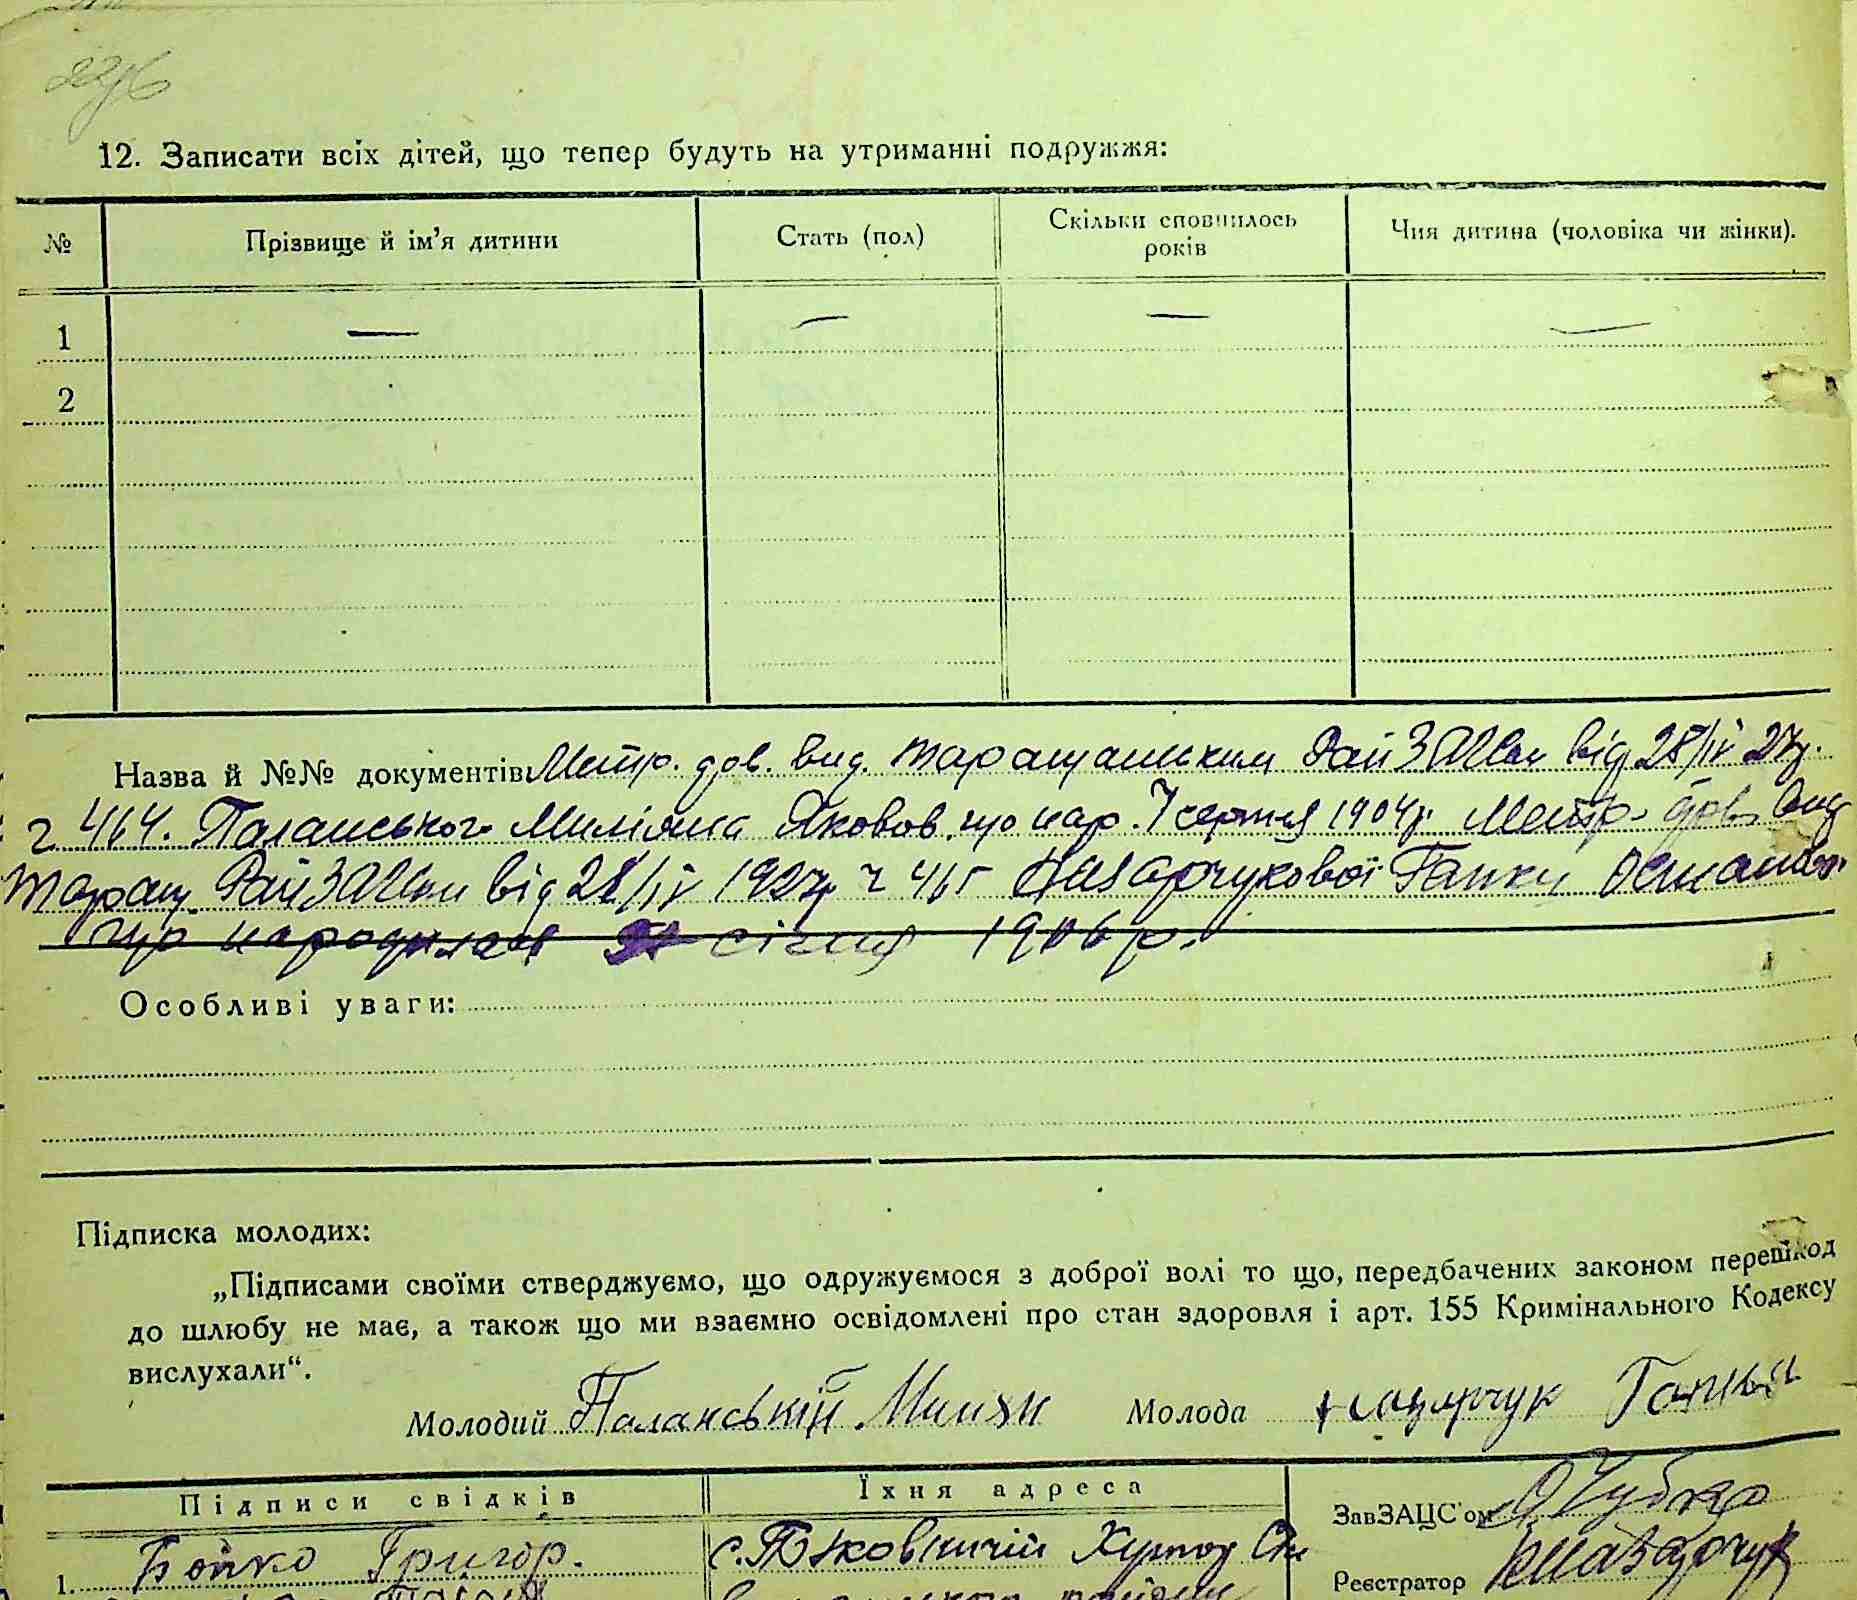 12. Записати всіх дітей, що тепер будуть на утриманні подружжя:
№ Прізвище й ім’я дитини Стать (пол) Скільки сповнилось років Чия дитина (чоловіка чи жінки).
1 — — — —
2
Назва й №№ документів: Метр. дов. вид. Таращанським РайЗАЦСом від 28/IV 27р.
ч 464. Паланського Миліяна Яковов. що нар. 7 серпня 1904р. Метр. дов. вид
Таращ. РайЗАЦСом від 28/IV 1927р ч 465 Назарчукової Гапки
що народилася січня 1906 р.
Особливі уваги:
Підписка молодих:
„Підписами своїми стверджуємо, що одружуємося з доброї волі то що, передбачених законом перешкод
до шлюбу не має, а також що ми взаємно освідомлені про стан здоровля і арт. 155 Кримінального Кодексу
вислухали“.
Молодий Паланській Молода Назарчук Гапка
Підписи свідків Їхня адреса
ЗавЗАЦС’ом
1. Бойко Григор. с. Хутор
Реєстратор Назарчук